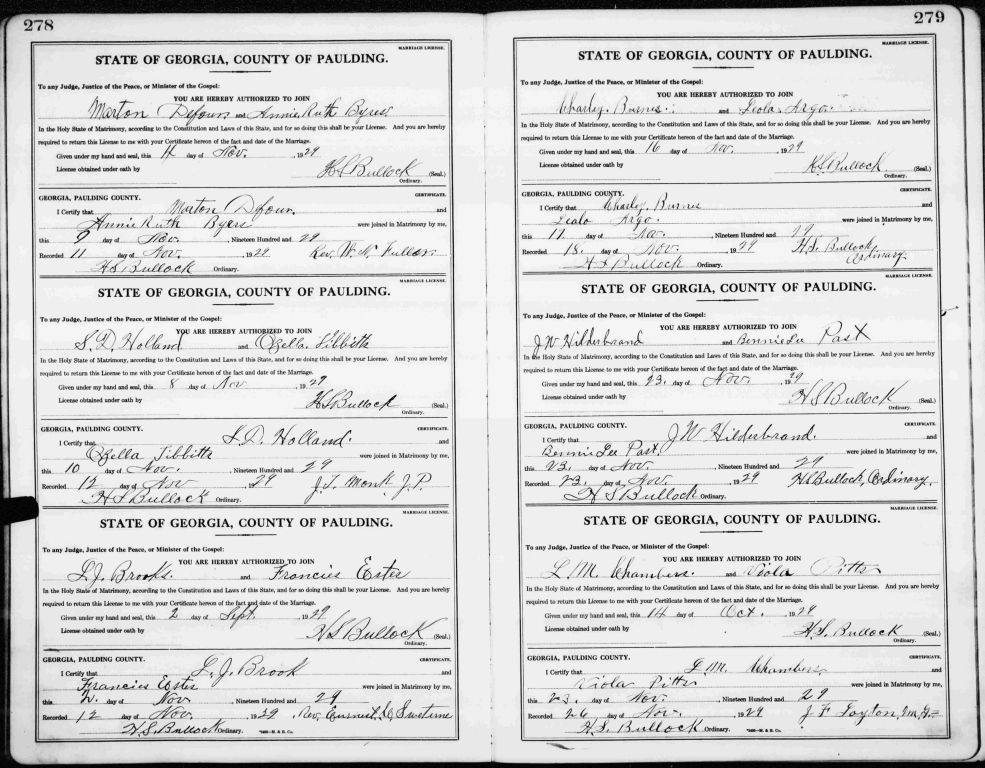 278
MARRIAGE LICENSE.
STATE OF GEORGIA, COUNTY OF PAULDING.
To any Judge, Justice of the Peace, or Minister of the Gospel:
YOU ARE HEREBY AUTHORIZED TO JOIN
Marton Defours and Annie Ruth Byers
In the Holy State of Matrimony, according to the Constitution and Laws of this State, and for so doing this shall be your License. And you are hereby
required to return this License to me with your Certificate hereon of the fact and date of the Marriage.
Given under my hand and seal, this day of Nov. , 1929
License obtained under oath by H S Bullock (Seal.)
Ordinary.
GEORGIA, PAULDING COUNTY. CERTIFICATE.
I Certify that Marton Dfour. and
Annie Ruth Byers were joined in Matrimony by me,
this 9 day of Nov. , Nineteen Hundred and 29
Recorded 11 day of Nov. , 1929 Rev. W. N. Fuller.
H S Bullock Ordinary.
MARRIAGE LICENSE.
STATE OF GEORGIA, COUNTY OF PAULDING.
To any Judge, Justice of the Peace, or Minister of the Gospel:
YOU ARE HEREBY AUTHORIZED TO JOIN
S. D. Holland and Ozella Tibbitts
In the Holy State of Matrimony, according to the Constitution and Laws of this State, and for so doing this shall be your License. And you are hereby
required to return this License to me with your Certificate hereon of the fact and date of the Marriage.
Given under my hand and seal, this 8 day of Nov , 1929
License obtained under oath by H S Bullock (Seal.)
Ordinary.
GEORGIA, PAULDING COUNTY. CERTIFICATE.
I Certify that S. D. Holland. and
Ozella Tibbitts were joined in Matrimony by me,
this 10 day of Nov. , Nineteen Hundred and 29
Recorded 12 day of Nov , 1929 J. T. Monk J. P.
H S Bullock Ordinary.
MARRIAGE LICENSE.
STATE OF GEORGIA, COUNTY OF PAULDING.
To any Judge, Justice of the Peace, or Minister of the Gospel:
YOU ARE HEREBY AUTHORIZED TO JOIN
L. J. Brooks. and Francies Estes
In the Holy State of Matrimony, according to the Constitution and Laws of this State, and for so doing this shall be your License. And you are hereby
required to return this License to me with your Certificate hereon of the fact and date of the Marriage.
Given under my hand and seal, this 2 day of Sept. , 1929
License obtained under oath by H S Bullock (Seal.)
Ordinary.
GEORGIA, PAULDING COUNTY. CERTIFICATE.
I Certify that L. J. Brook and
Francies Estes were joined in Matrimony by me,
this 2. day of Nov , Nineteen Hundred and 29
Recorded 12 day of Nov. , 1929 Rev.
H. S. Bullock Ordinary.
279
MARRIAGE LICENSE.
STATE OF GEORGIA, COUNTY OF PAULDING.
To any Judge, Justice of the Peace, or Minister of the Gospel:
YOU ARE HEREBY AUTHORIZED TO JOIN
Charley. Burnes. and Leola Argo.
In the Holy State of Matrimony, according to the Constitution and Laws of this State, and for so doing this shall be your License. And you are hereby
required to return this License to me with your Certificate hereon of the fact and date of the Marriage.
Given under my hand and seal, this 16 day of Nov. , 1929
License obtained under oath by H. S Bullock (Seal.)
Ordinary.
GEORGIA, PAULDING COUNTY. CERTIFICATE.
I Certify that Charley. Burnes and
Leala Argo. were joined in Matrimony by me,
this 17 day of Nov. , Nineteen Hundred and 29
Recorded 18. day of Nov. , 1929 H. S. Bullock,
Ordinary.
H S Bullock Ordinary.
MARRIAGE LICENSE.
STATE OF GEORGIA, COUNTY OF PAULDING.
To any Judge, Justice of the Peace, or Minister of the Gospel:
YOU ARE HEREBY AUTHORIZED TO JOIN
J W Hilderbrand and Bennie Lee Past
In the Holy State of Matrimony, according to the Constitution and Laws of this State, and for so doing this shall be your License. And you are hereby
required to return this License to me with your Certificate hereon of the fact and date of the Marriage.
Given under my hand and seal, this 23. day of Nov. , 1929
License obtained under oath by H S Bullock (Seal.)
Ordinary.
GEORGIA, PAULDING COUNTY. CERTIFICATE.
I Certify that J W Hilderbrand. and
Bennie Lee Past. were joined in Matrimony by me,
this 23. day of Nov , Nineteen Hundred and 29
Recorded 23. day of Nov. , 1929 H S Bullock, Ordinary.
H S Bullock Ordinary.
MARRIAGE LICENSE.
STATE OF GEORGIA, COUNTY OF PAULDING.
To any Judge, Justice of the Peace, or Minister of the Gospel:
YOU ARE HEREBY AUTHORIZED TO JOIN
L. M. Chambers. and Viola Pitts
In the Holy State of Matrimony, according to the Constitution and Laws of this State, and for so doing this shall be your License. And you are hereby
required to return this License to me with your Certificate hereon of the fact and date of the Marriage.
Given under my hand and seal, this 14 day of Oct. , 1929
License obtained under oath by H. S. Bullock (Seal.)
Ordinary.
GEORGIA, PAULDING COUNTY. CERTIFICATE.
I Certify that L. M. Chambers and
Viola Pitts were joined in Matrimony by me,
this 23. day of Nov. , Nineteen Hundred and 29
Recorded 26 day of Nov. , 1929 J. F Layton,
H. S. Bullock Ordinary.